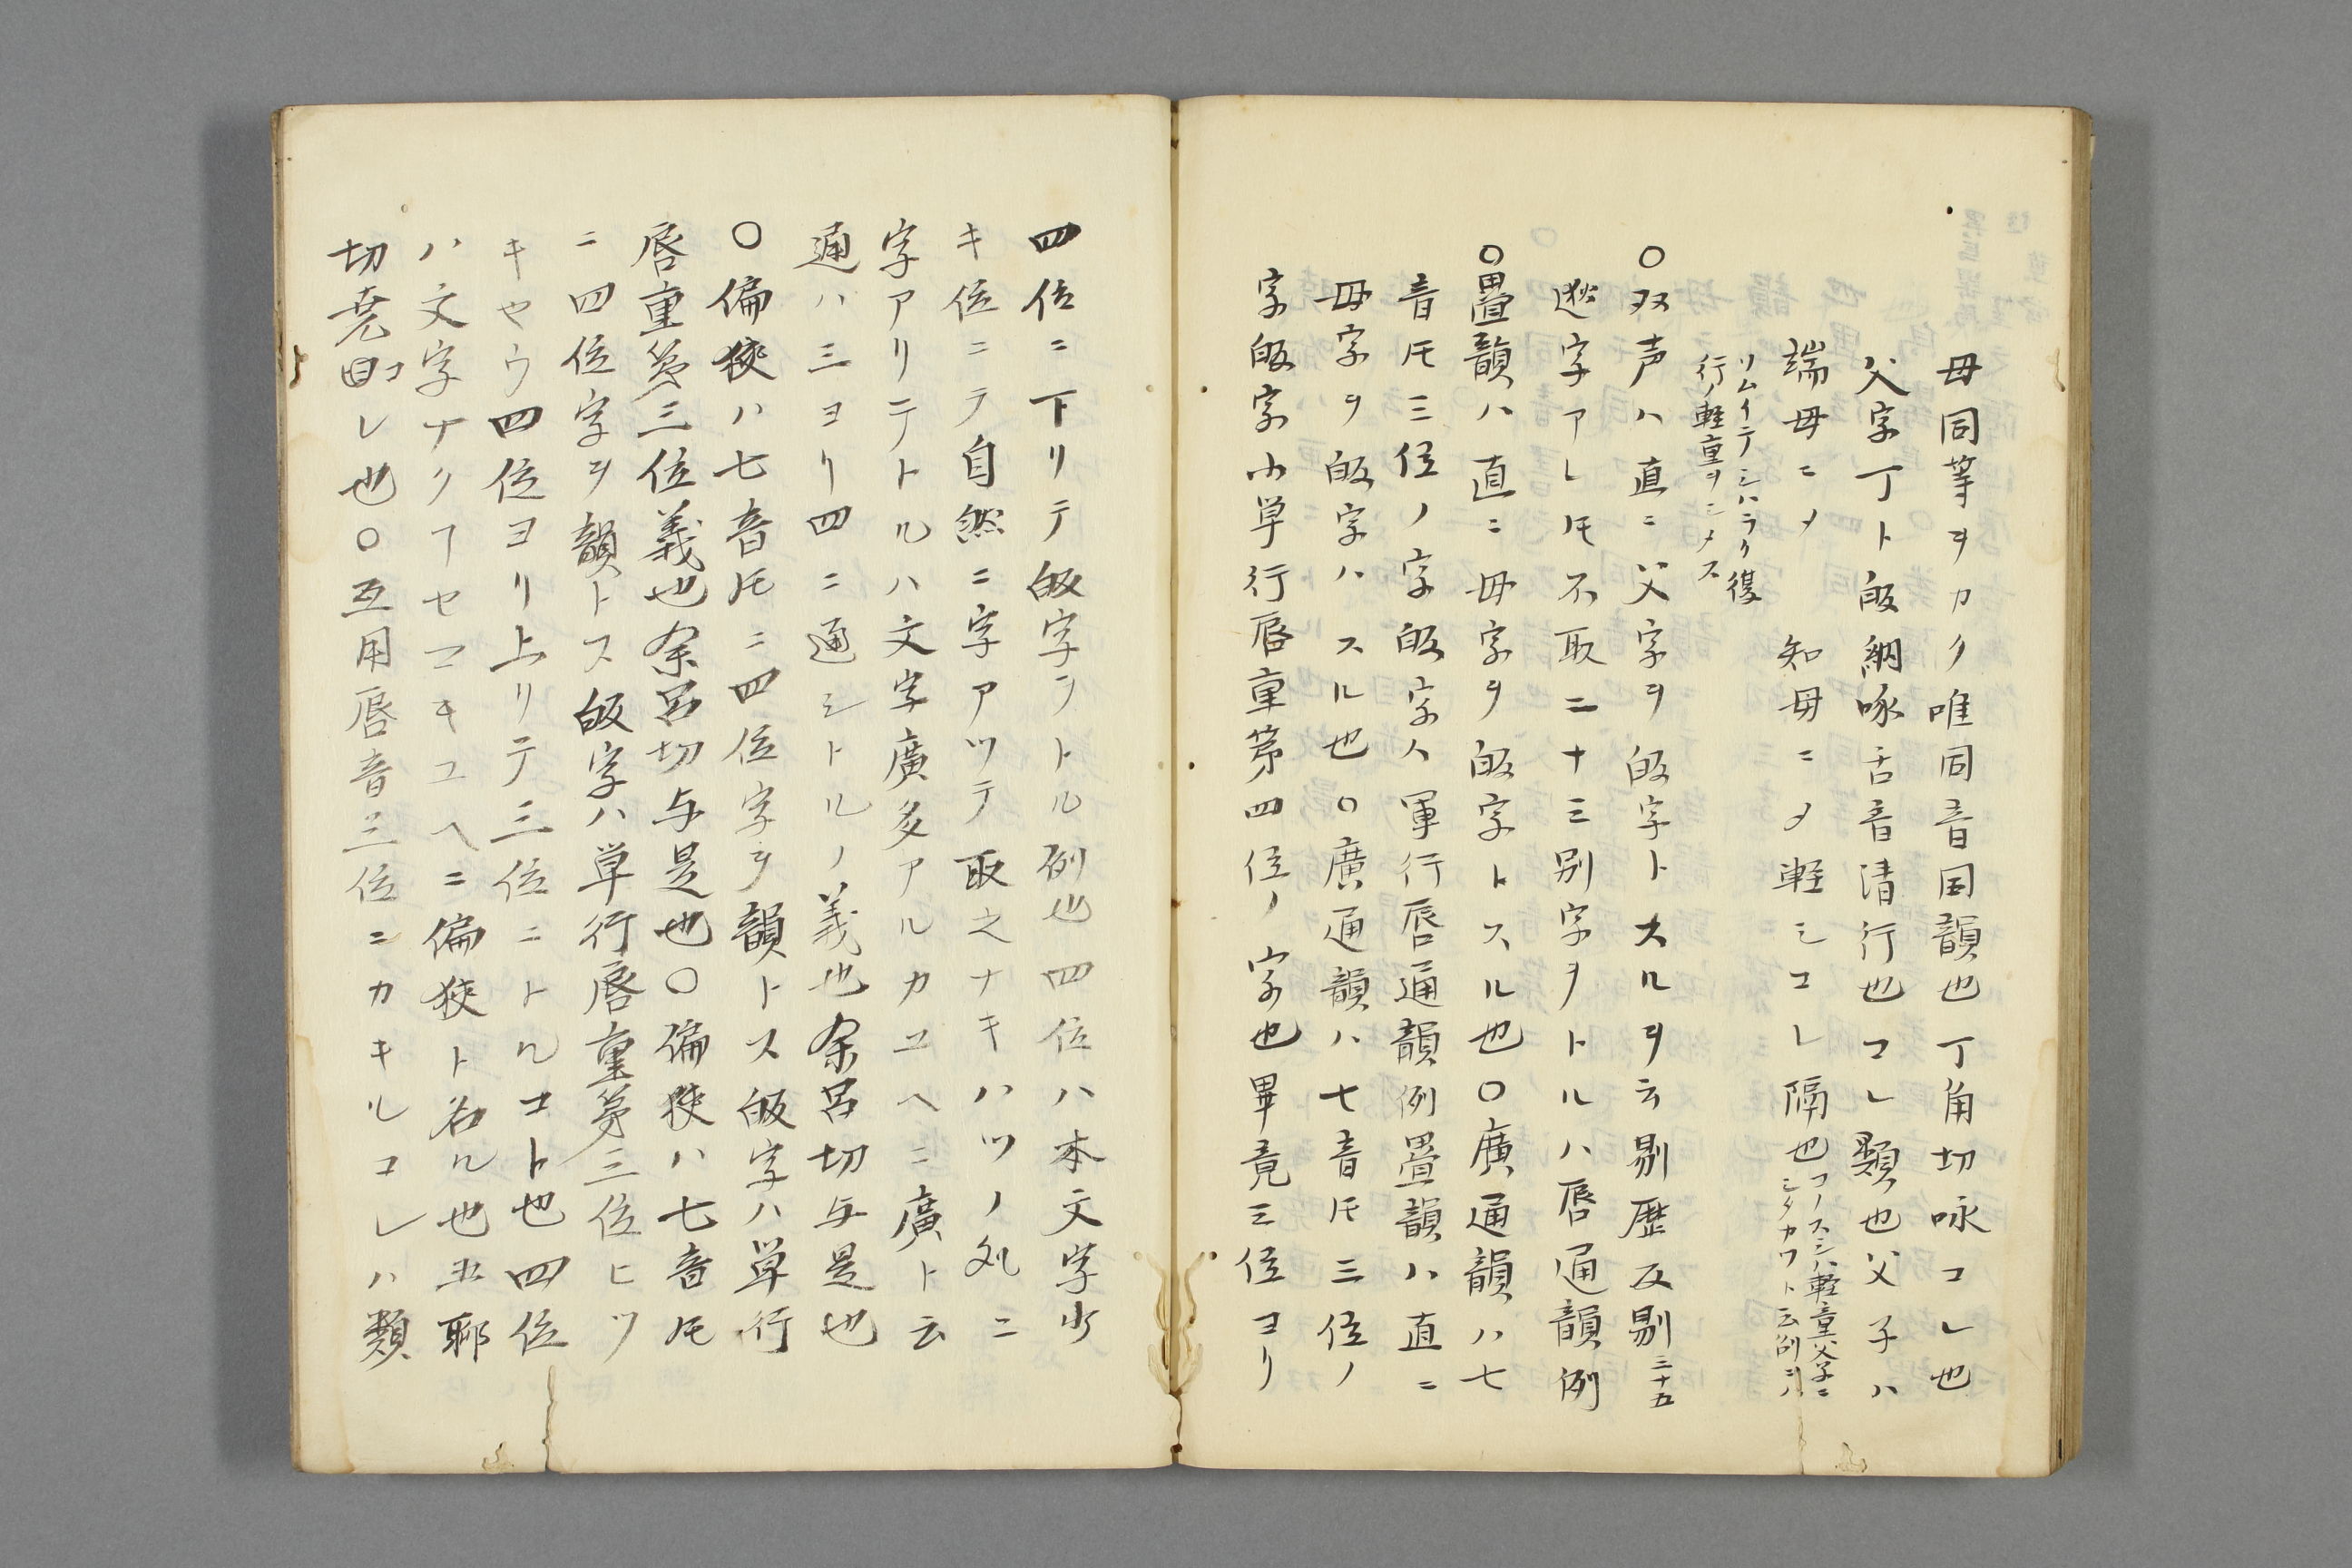 母同等ヲカク唯同音同韻也丁角切啄コレ也
父字丁ト皈納啄舌音清行也コレ類也父子ハ
端母ニメ　知母ニメ軽シコレ隔也
コノスシハ軽重父子ニ
シタカワト云例ニハ
リムイテシハラク復
行ノ軽重ヲシメス
〇双声ハ直ニ父字ヲ皈字トスルヲ云剔歴反剔三十五
逖字アレ𪜈不取二十三別字ヲトルハ唇通韻例
〇疊韻ハ直ニ母字ヲ皈字トスル也〇廣通韻ハ七
音𪜈三位ノ字皈字ハ軍行唇通韻例疊韻ハ直ニ
母字ヲ皈字ハスル也〇廣通韻ハ七音𪜈三位ノ
字皈字ハ単行唇重第四位ノ字也畢竟三位ヨリ
四位ニ下リテ皈字ヲトル例也四位ハ本文字少
キ位ニテ自然ニ字アツテ取之ナキハツノ処ニ
字アリテトルハ文字廣多アルカユヘニ廣ト云
通ハ三ヨリ四ニ通シトルノ義也余呂切与是也
〇偏狹ハ七音𪜈ニ四位字ヲ韻トス皈字ハ単行
唇重第三位義也余呂切与是也〇偏狹ハ七音𪜈
ニ四位字ヲ韻トス皈字ハ単行唇重第三位ヒツ
キヤウ四位ヨリ上リテ三位ニトルコト也四位
ハ文字ナクフセマキユヘニ偏狹ト名ル也丑耶
切コレ也〇互用唇音三位ニカキルコレハ類